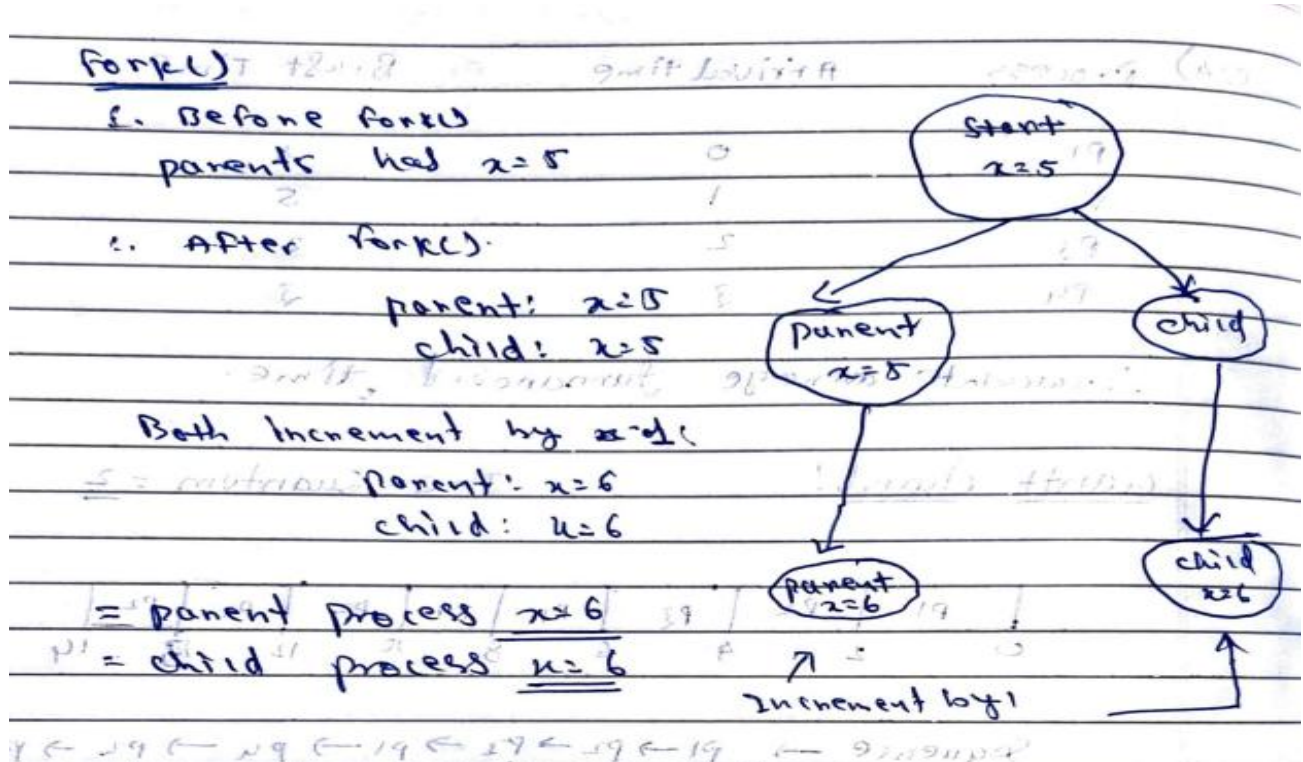 fork()
1. Before fork()
parents had x=5
2. After fork().
parent: x=5
child: x=5
Both Increment by
parent: x=6
child: x=6
= parent process x=6
= child process x=6
Start
x=5
parent
x=5
child
parent
x=6
child
x=6
Increment by 1